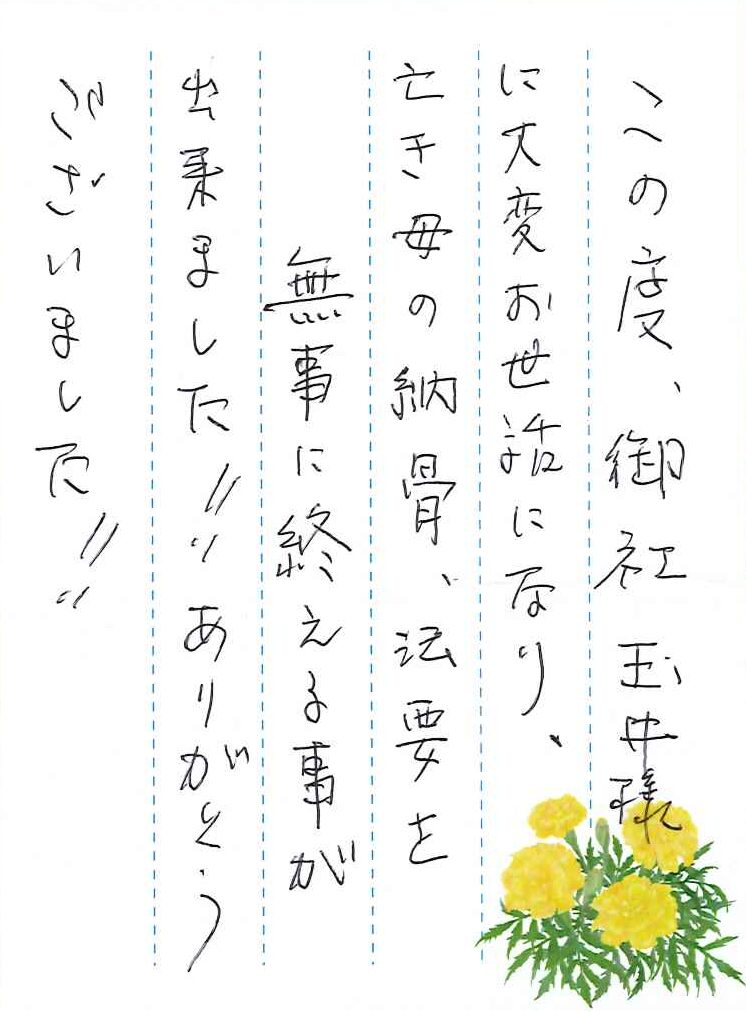 この度、御社玉井様
に大変お世話になり、
亡き母の納骨、法要を
無事に終える事が
出来ました!!ありがとう
ございました!!